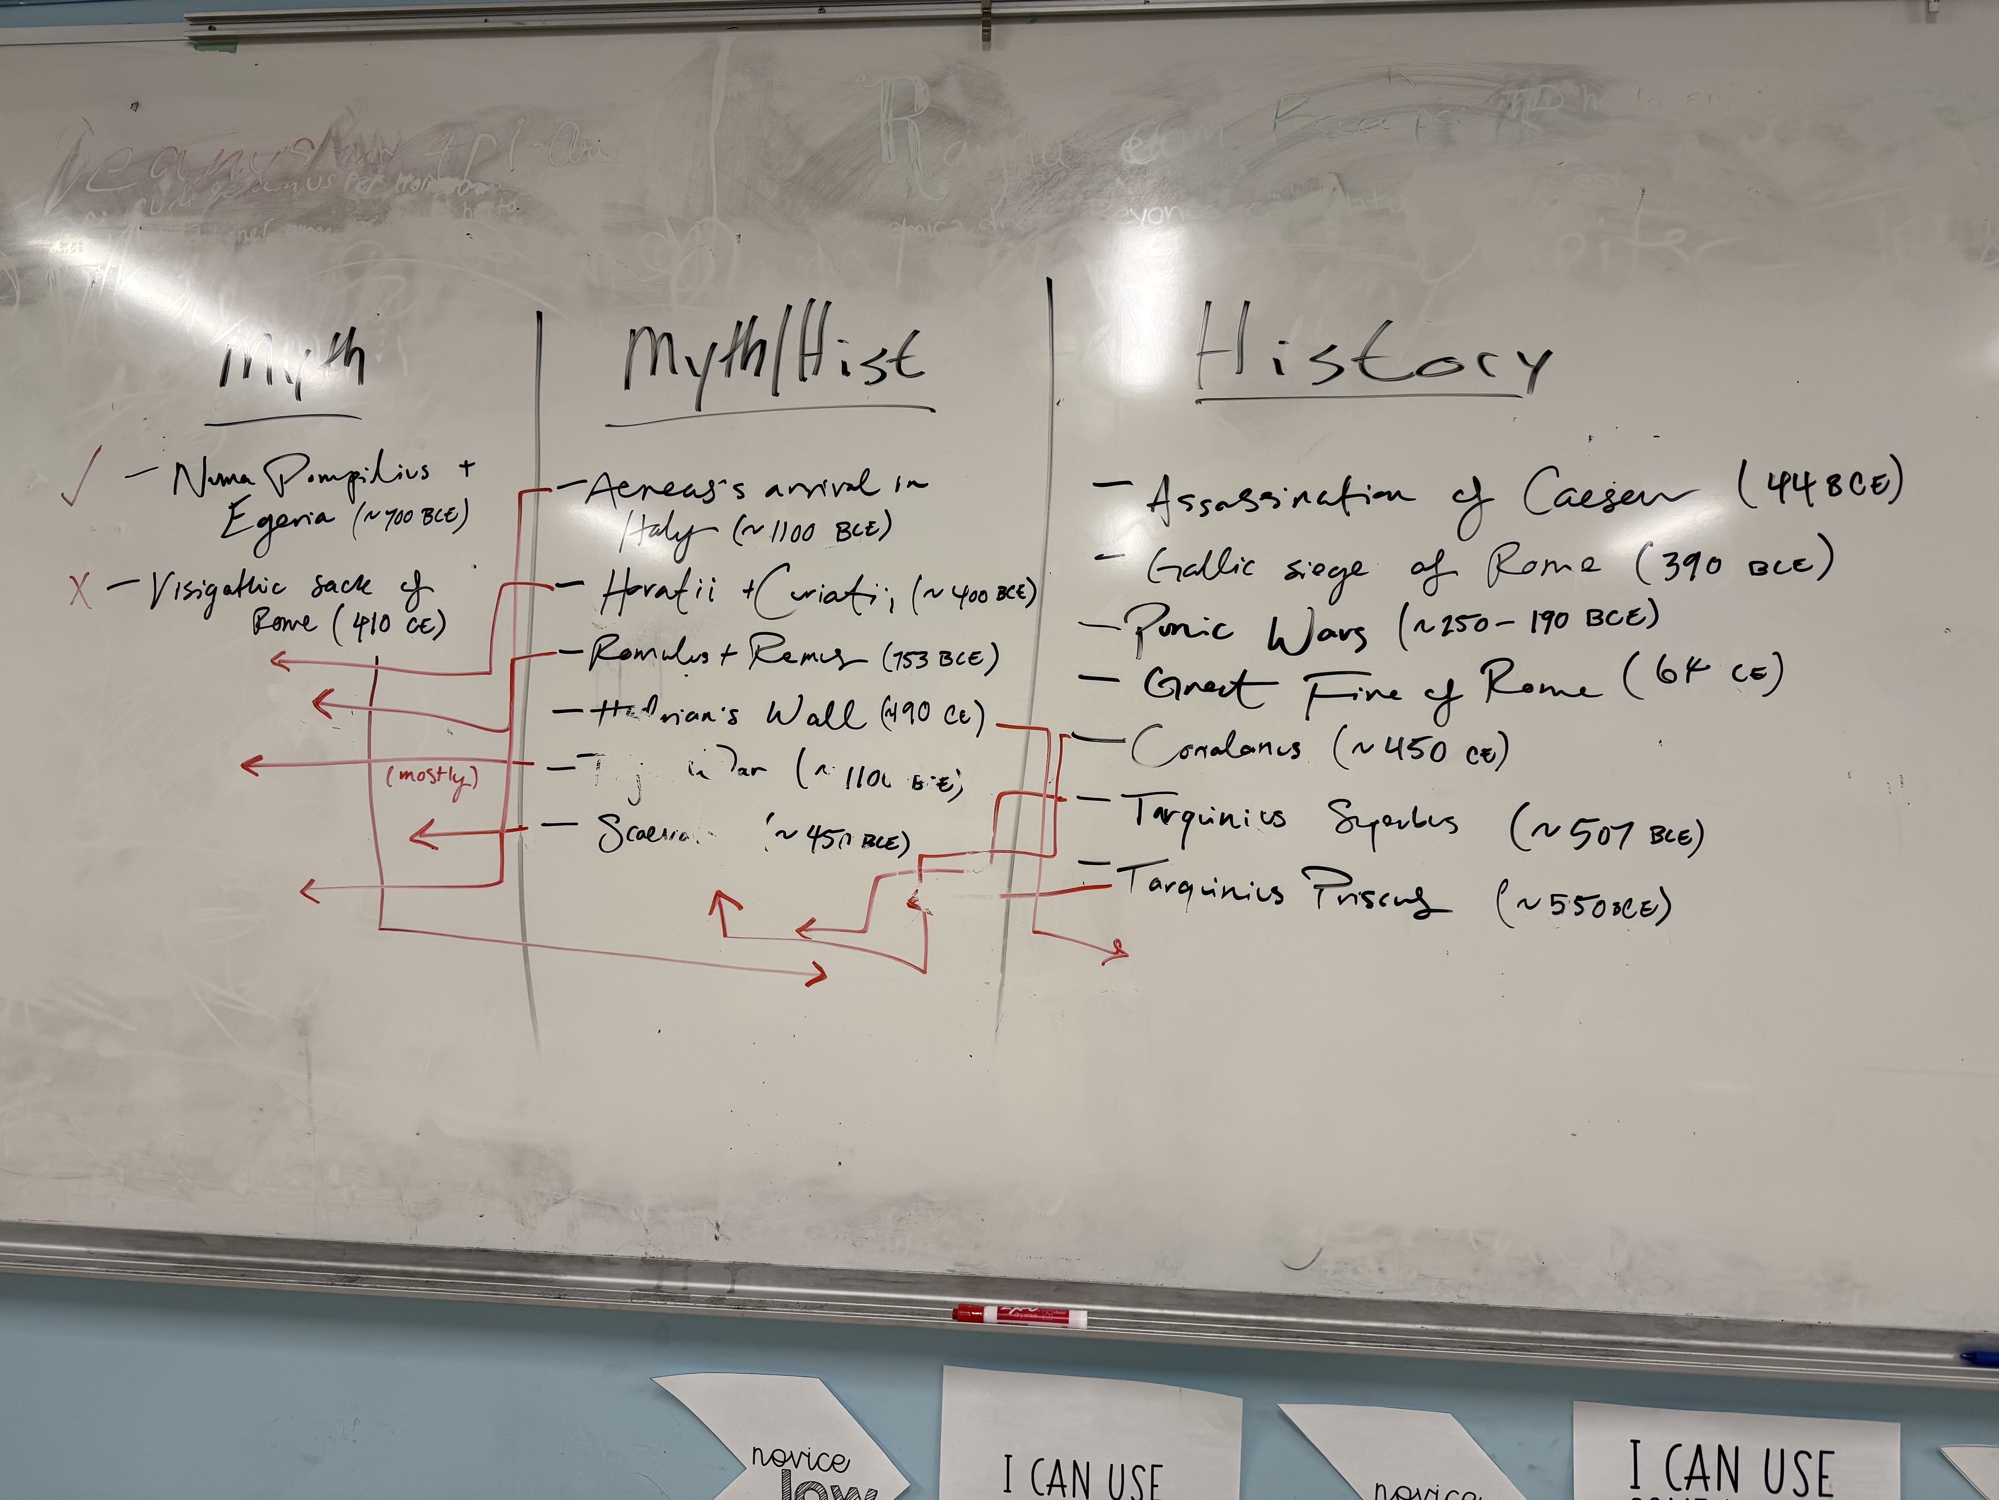 Myth
✓ - Numa Pompilius +
Egeria (~700 BCE)
X - Visigothic sack of
Rome (410 CE)
(mostly)
Myth/Hist
- Aeneas's arrival in
Italy (~1100 BCE)
- Horatii + Curiatii (~400 BCE)
- Romulus + Remus (753 BCE)
- Hadrian's Wall (~190 CE)
- (~1100 BCE)
- (~450 BCE)
History
- Assassination of Caesar (44 BCE)
- Gallic siege of Rome (390 BCE)
- Punic Wars (~250-190 BCE)
- Great Fire of Rome (64 CE)
- Coriolanus (~450 CE)
- Tarquinius Superbus (~507 BCE)
- Tarquinius Priscus (~550 BCE)
novice
low
I CAN USE
novice
I CAN USE